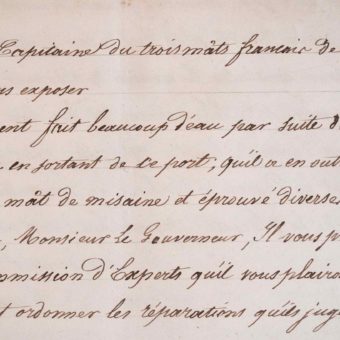 Capitaine du trois mâts francais de
exposer
ent fait beaucoup d'eau par suite d
en sortant de ce port, qu'il a en out
mât de misaine et éprouvé diverses
, Monsieur le Gouverneur, Il vous p
mmission d'Experts qu'il vous plairo
t ordonner les réparations qu'ils jug